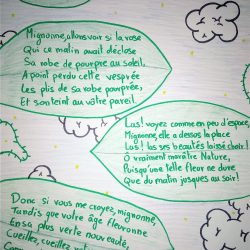 Mignonne, allons voir si la rose
Qui ce matin avait déclose
Sa robe de pourpre au soleil,
A point perdu cette vesprée
Les plis de sa robe pourprée,
Et son teint au vôtre pareil.
Las! voyez comme en peu d'espace,
Mignonne, elle a dessus la place
Las! las ses beautés laissé choir!
O vraiment marâtre Nature,
Puisqu'une telle fleur ne dure
Que du matin jusques au soir!
Donc si vous me croyez, mignonne,
Tandis que votre âge fleuronne
En sa plus verte nouveauté,
Cueillez, cueillez